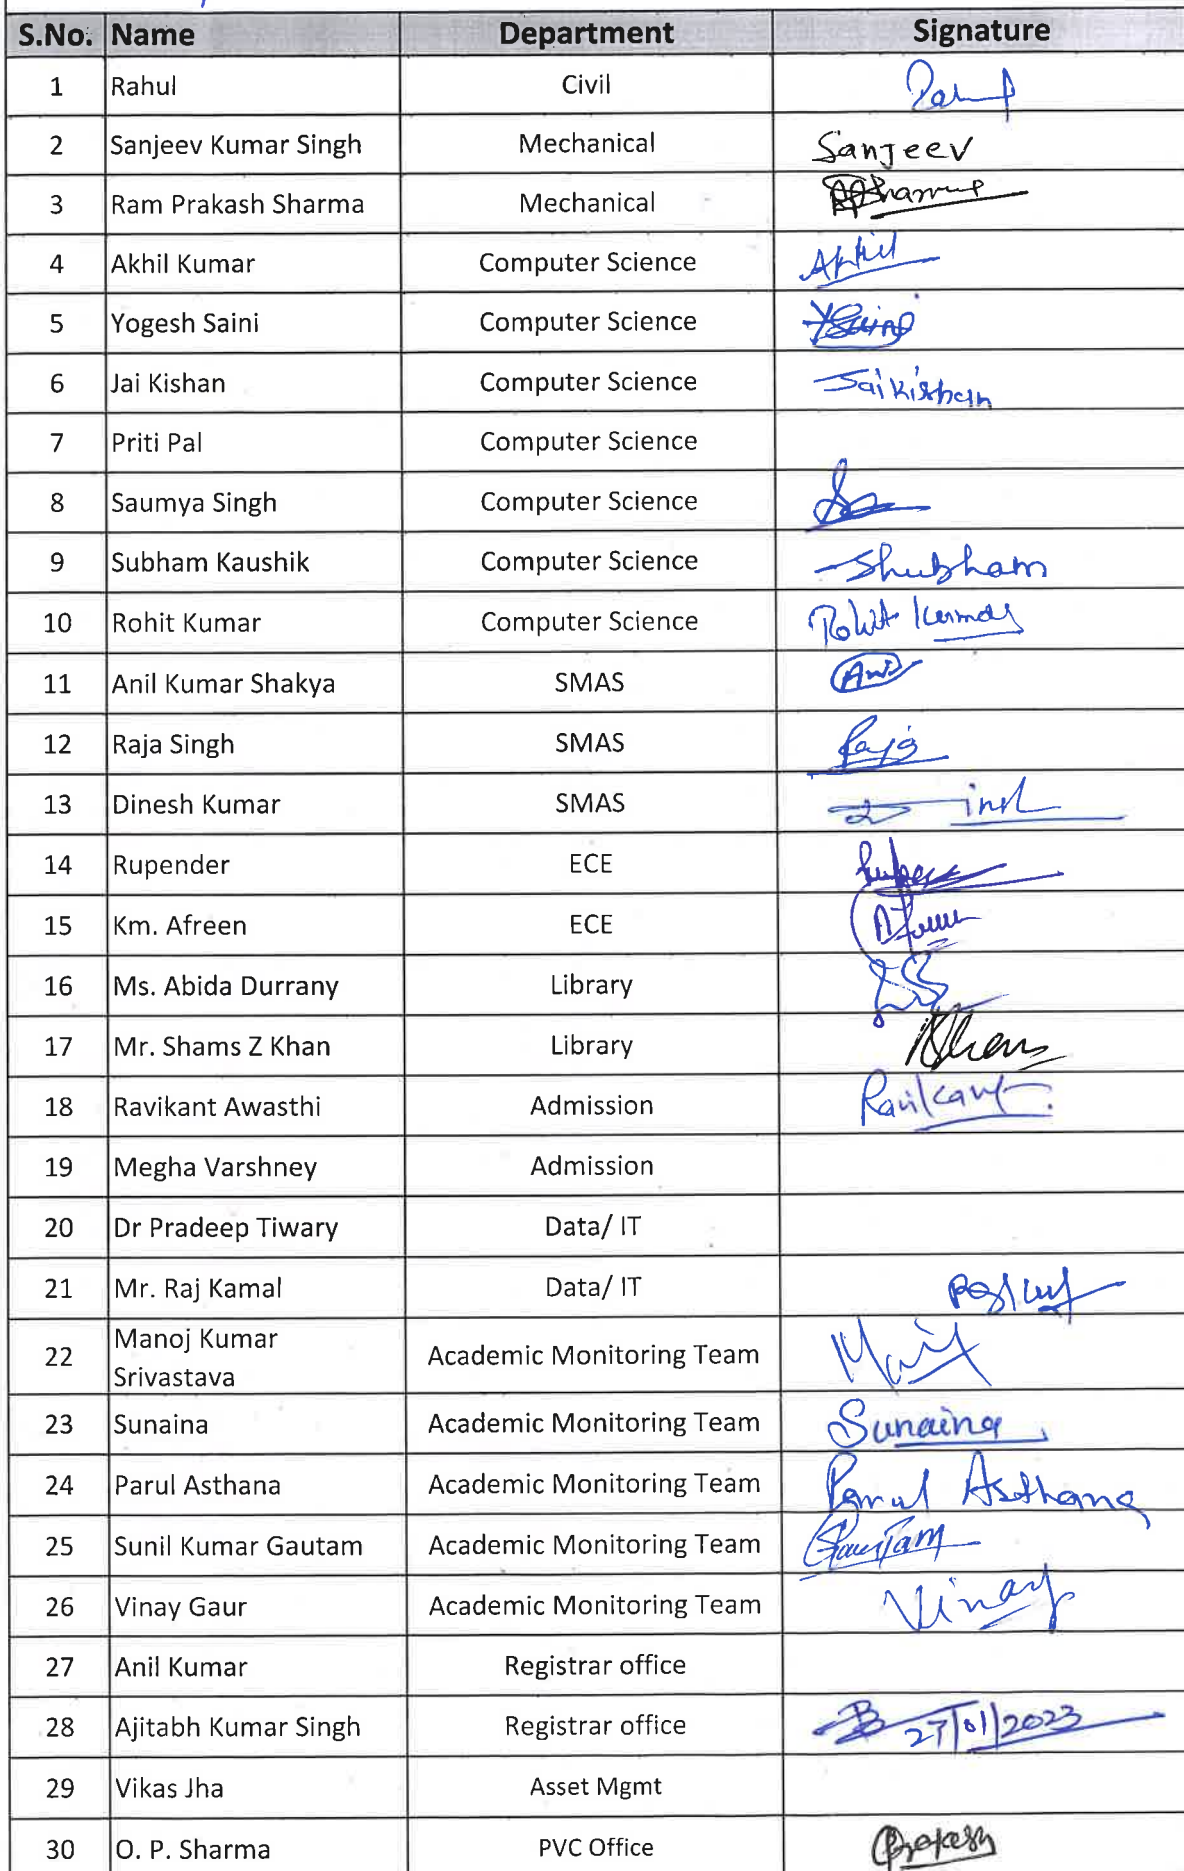 S.No. Name Department Signature
1 Rahul Civil
2 Sanjeev Kumar Singh Mechanical Sanjeev
3 Ram Prakash Sharma Mechanical
4 Akhil Kumar Computer Science Akhil
5 Yogesh Saini Computer Science
6 Jai Kishan Computer Science Jai Kishan
7 Priti Pal Computer Science
8 Saumya Singh Computer Science
9 Subham Kaushik Computer Science Shubham
10 Rohit Kumar Computer Science Rohit Kumar
11 Anil Kumar Shakya SMAS
12 Raja Singh SMAS Raja
13 Dinesh Kumar SMAS
14 Rupender ECE
15 Km. Afreen ECE
16 Ms. Abida Durrany Library
17 Mr. Shams Z Khan Library
18 Ravikant Awasthi Admission Ravikant
19 Megha Varshney Admission
20 Dr Pradeep Tiwary Data/ IT
21 Mr. Raj Kamal Data/ IT
22 Manoj Kumar Srivastava Academic Monitoring Team
23 Sunaina Academic Monitoring Team Sunaina
24 Parul Asthana Academic Monitoring Team Parul Asthana
25 Sunil Kumar Gautam Academic Monitoring Team Gautam
26 Vinay Gaur Academic Monitoring Team Vinay
27 Anil Kumar Registrar office
28 Ajitabh Kumar Singh Registrar office 27/01/2023
29 Vikas Jha Asset Mgmt
30 O. P. Sharma PVC Office